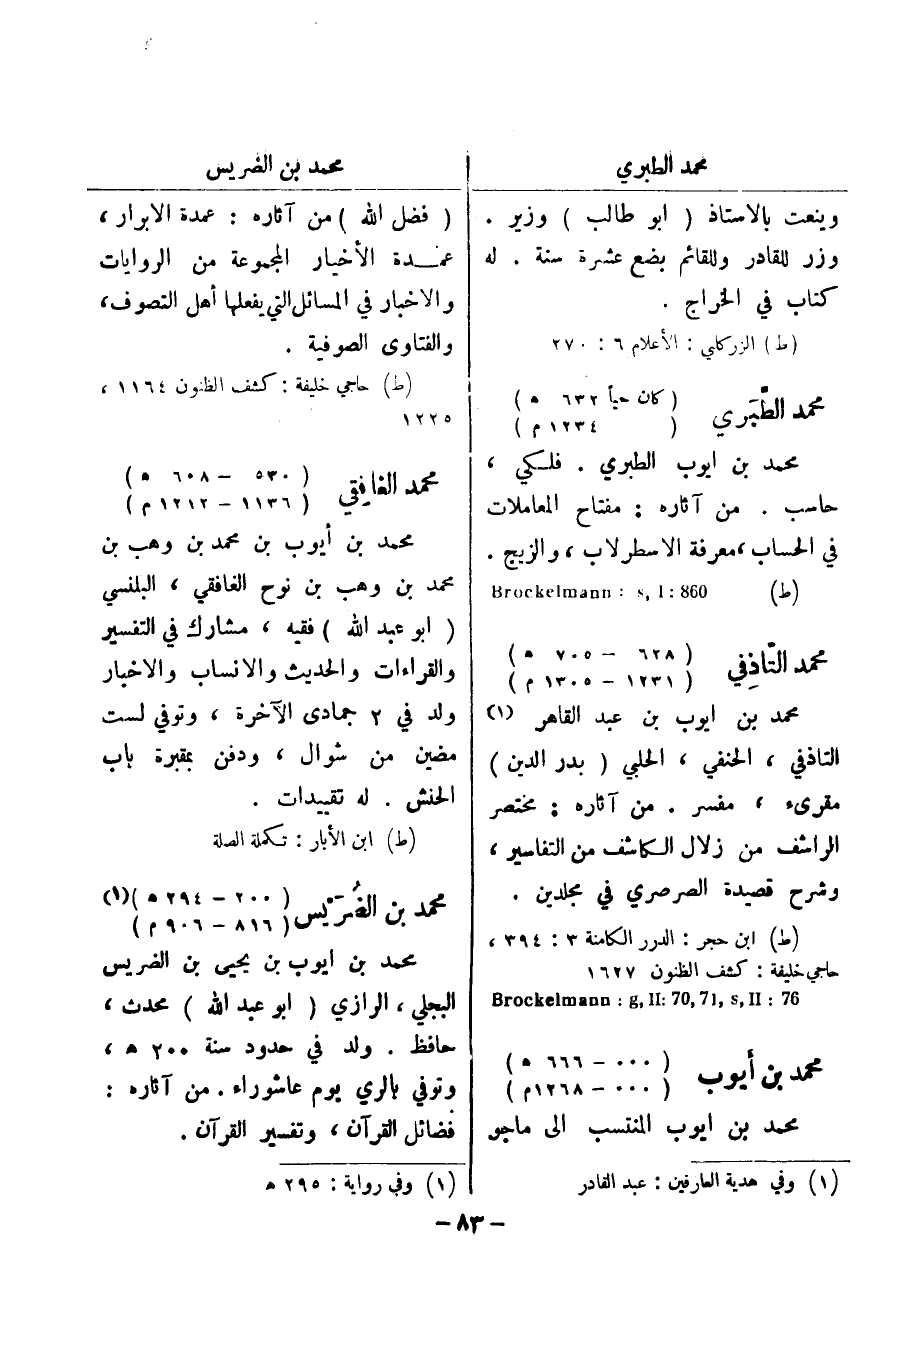 محمد الطبري
وينعت بالاستاذ ( ابو طالب ) وزير .
وزر للقادر وللقائم بضع عشرة سنة . له
كتاب في الخراج .
(ط) الزركلي : الأعلام ٦ : ٢٧٠
محمد الطَّبَري ( كان حياً ٦٣٢ ه )
( ١٢٣٤ م )
محمد بن ايوب الطبري . فلكي ،
حاسب . من آثاره : مفتاح المعاملات
في الحساب ، معرفة الاسطرلاب ، والزيج .
(ط) Brockelmann : s, I : 860
محمد التَّاذِفي ( ٦٢٨ – ٧٠٥ ه )
( ١٢٣١ – ١٣٠٥ م )
محمد بن ايوب بن عبد القاهر (١)
التاذفي ، الحنفي ، الحلبي ( بدر الدين )
مقرىء ، مفسر . من آثاره : مختصر
الراشف من زلال الكاشف من التفاسير ،
وشرح قصيدة الصرصري في مجلدين .
(ط) ابن حجر : الدرر الكامنة ٣ : ٣٩٤ ،
حاجي خليفة : كشف الظنون ١٦٢٧
Brockelmann : g, II: 70, 71, s, II : 76
محمد بن أيوب ( ٠٠٠ – ٦٦٦ ه )
( ٠٠٠ – ١٢٦٨ م )
محمد بن ايوب المنتسب الى ماجو
(١) وفي هدية العارفين : عبد القادر
محمد بن الضريس
( فضل الله ) من آثاره : عمدة الابرار ،
عمدة الأخيار المجموعة من الروايات
والاخبار في المسائل التي يفعلها أهل التصوف ،
والفتاوى الصوفية .
(ط) حاجي خليفة : كشف الظنون ١١٦٤ ،
١٢٢٥
محمد الغافِقي ( ٥٣٠ – ٦٠٨ ه )
( ١١٣٦ – ١٢١٢ م )
محمد بن أيوب بن محمد بن وهب بن
محمد بن وهب بن نوح الغافقي ، البلنسي
( ابو عبد الله ) فقيه ، مشارك في التفسير
والقراءات والحديث والانساب والاخبار
ولد في ٢ جمادى الآخرة ، وتوفي لست
مضين من شوال ، ودفن بمقبرة باب
الحنش . له تقييدات .
(ط) ابن الأبار : تكملة الصلة
محمد بن الضُرَيْس ( ٢٠٠ – ٢٩٤ ه )(١)
( ٨١٦ – ٩٠٦ م )
محمد بن ايوب بن يحيى بن الضريس
البجلي ، الرازي ( ابو عبد الله ) محدث ،
حافظ . ولد في حدود سنة ٢٠٠ ه ،
وتوفي بالري يوم عاشوراء . من آثاره :
فضائل القرآن ، وتفسير القرآن .
(١) وفي رواية : ٢٩٥ ه
– ٨٣ –